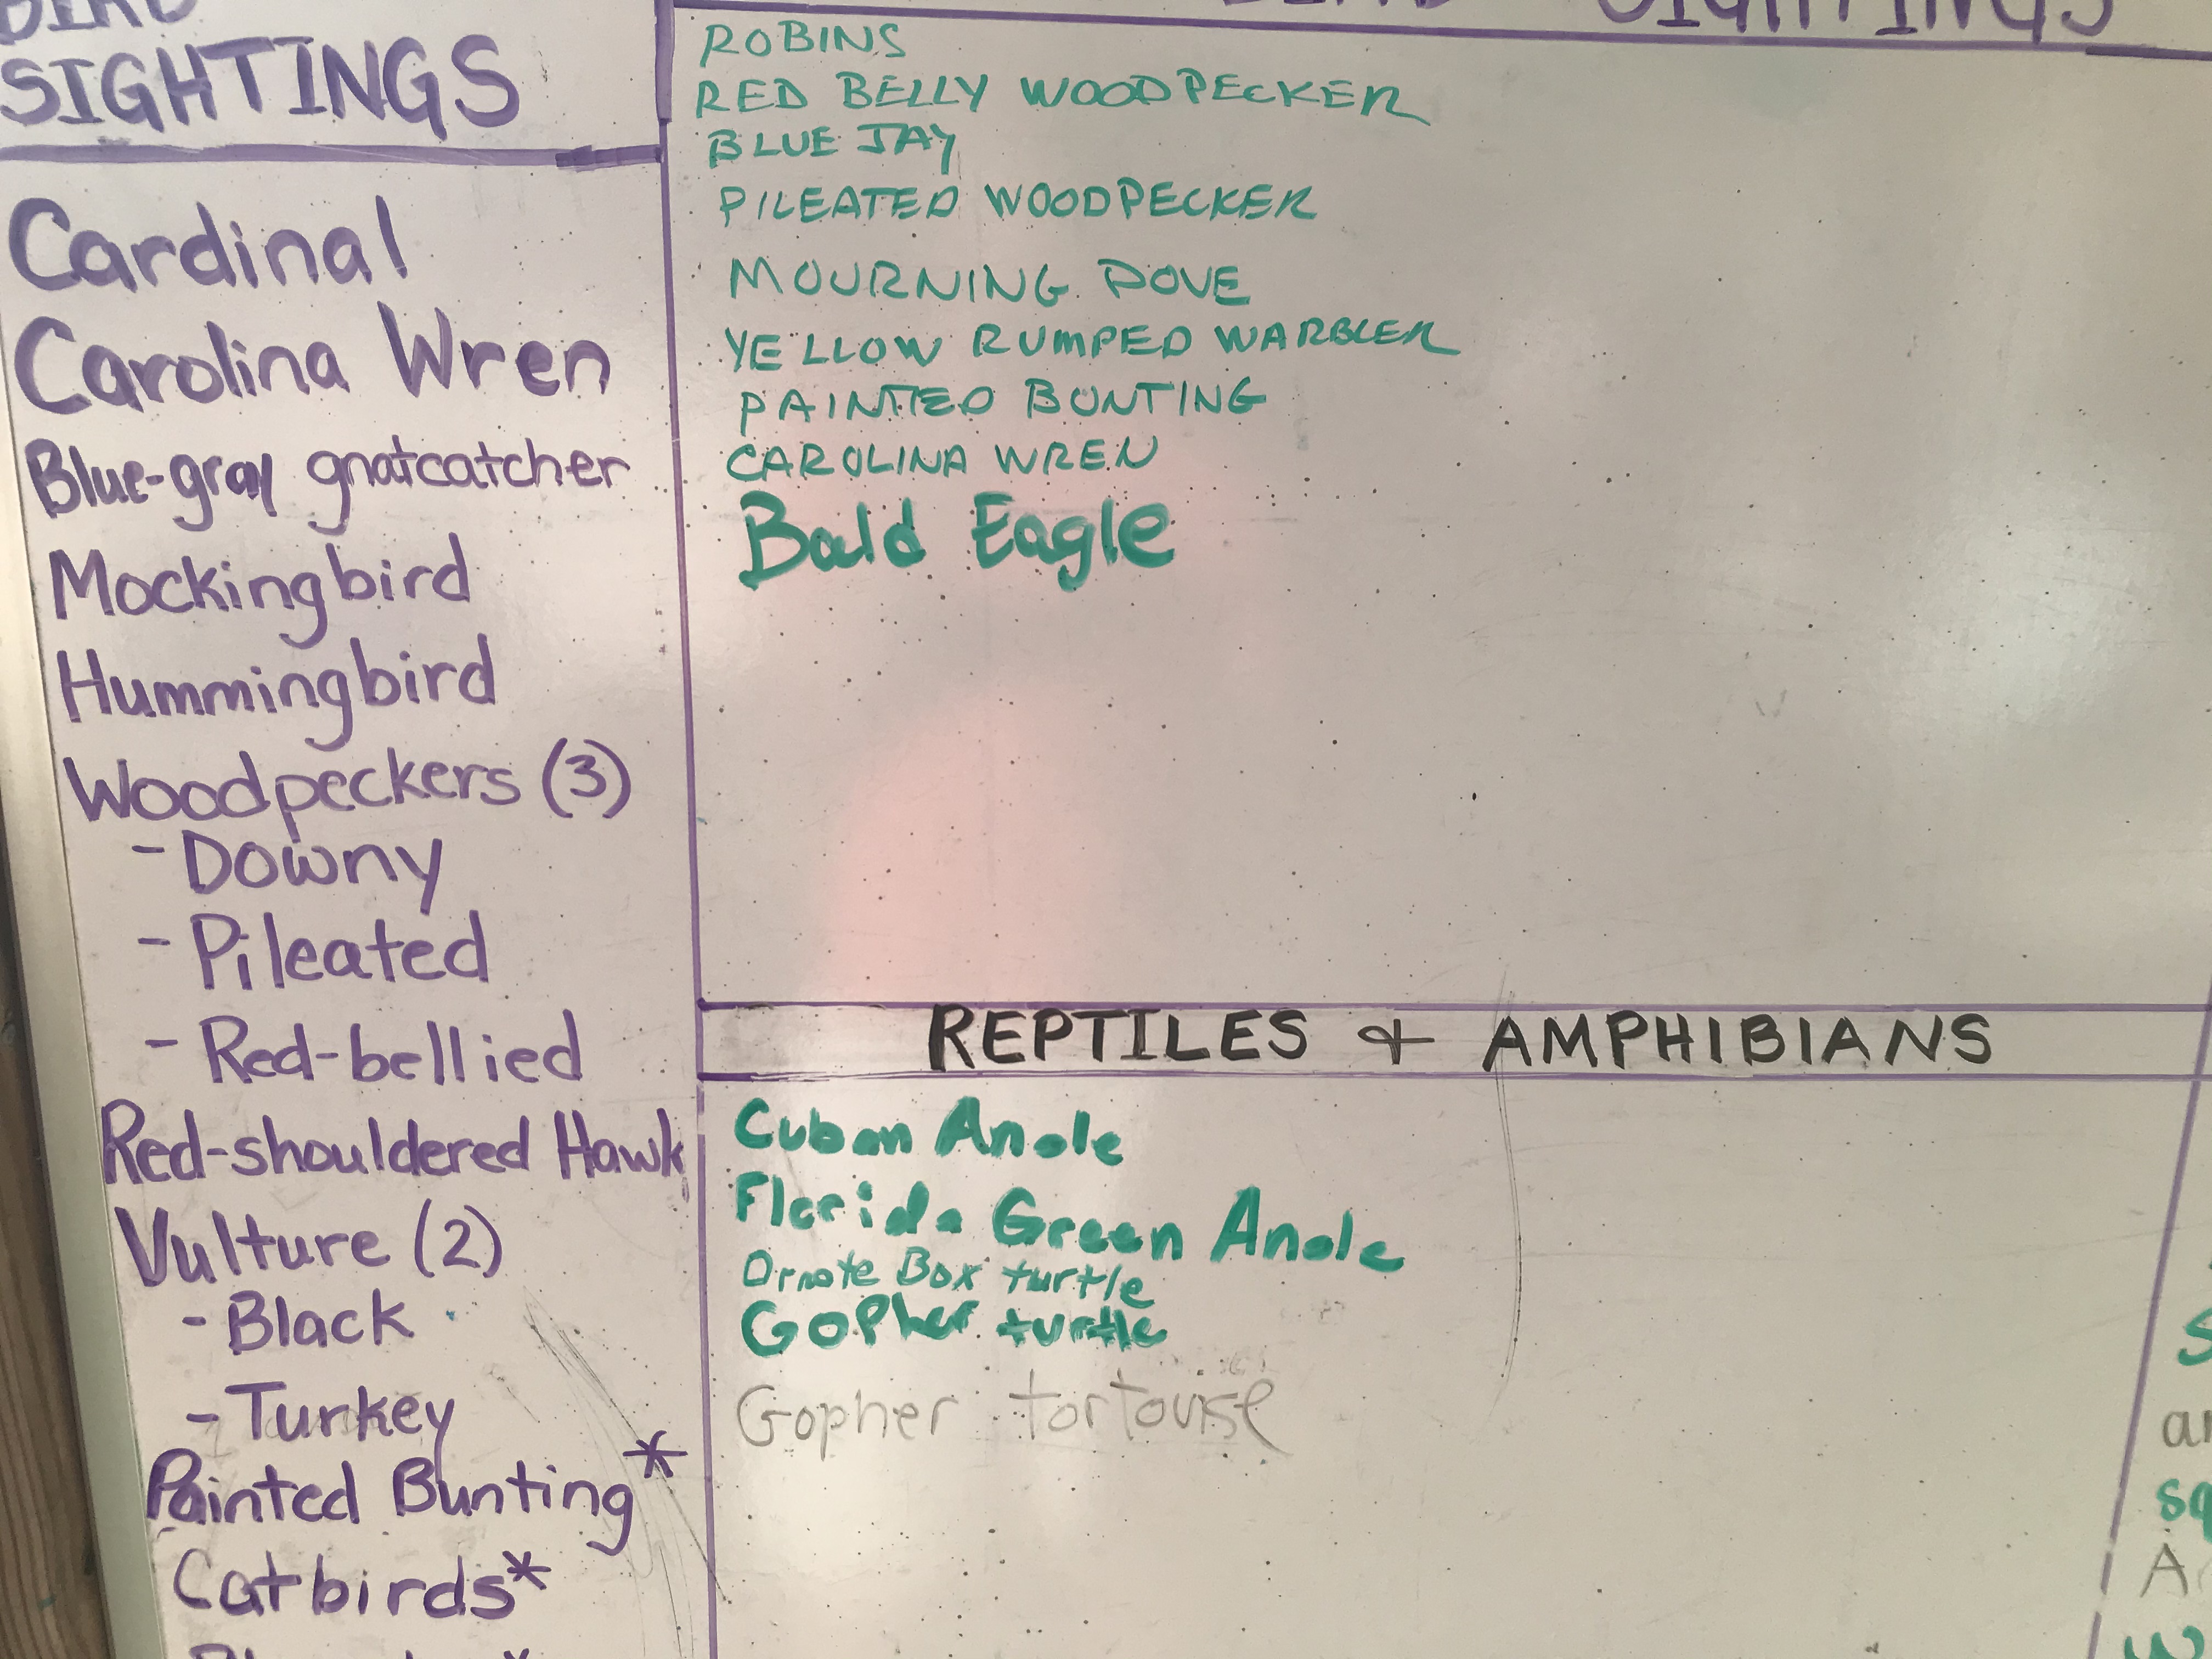 BIRD
SIGHTINGS
Cardinal
Carolina Wren
Blue-gray gnatcatcher
Mockingbird
Hummingbird
Woodpeckers (3)
- Downy
- Pileated
- Red-bellied
Red-shouldered Hawk
Vulture (2)
- Black
- Turkey
Painted Bunting*
Catbirds*
BIRD SIGHTINGS
ROBINS
RED BELLY WOODPECKER
BLUE JAY
PILEATED WOODPECKER
MOURNING DOVE
YELLOW RUMPED WARBLER
PAINTED BUNTING
CAROLINA WREN
Bald Eagle
REPTILES & AMPHIBIANS
Cuban Anole
Florida Green Anole
Ornate Box turtle
Gopher turtle
Gopher tortouise